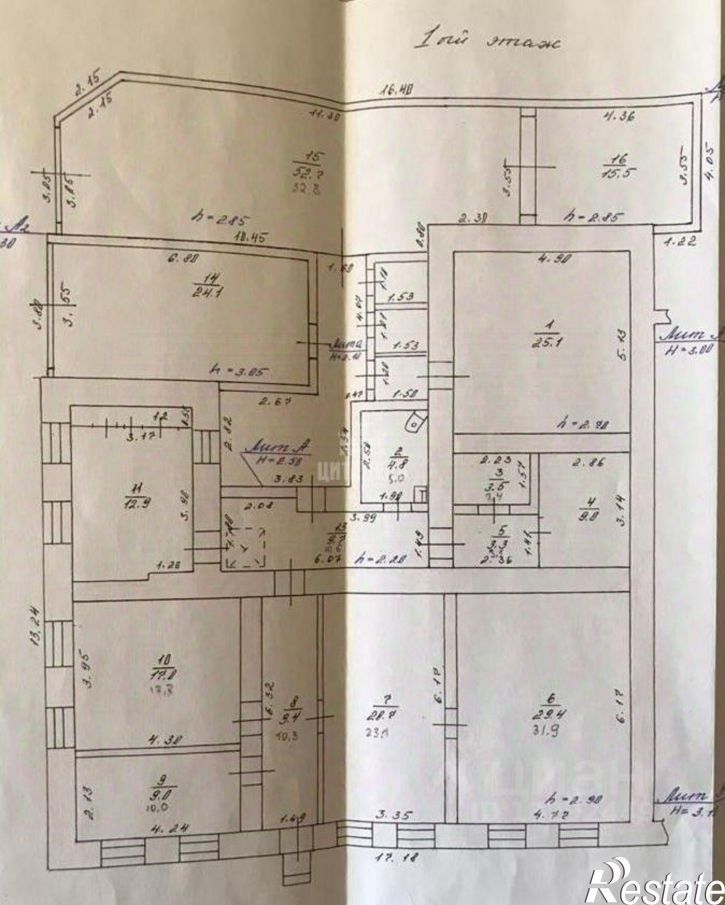 1ый этаж
2.15
2.15
16.40
11.30
4.36
15
52.7
52.8
16
15.5
3.05
3.05
3.55
3.55
4.05
h=2.85
h=2.85
10.45
2.30
2.80
1.22
6.80
14
24.1
3.80
3.55
1.53
1.53
1.50
4.90
1
25.1
5.13
Лит А
H=3.00
h=3.05
h=2.70
2.67
2.82
12
3.17
11
12.9
3.90
Лит А
H=2.50
3.83
2.50
2
4.8
5.0
1.90
2.23
3
3.5
1.57
2.86
4
9.0
3.14
2.08
3.99
13
6.07
h=2.20
1.49
5
2.36
1.41
1.20
13.24
3.95
10
17.0
4.30
6.32
8
9.4
10.3
7
20.7
23.1
6.17
6
29.4
31.9
6.17
9
9.0
10.0
2.13
4.24
1.49
3.35
h=2.90
4.77
17.18
Restate